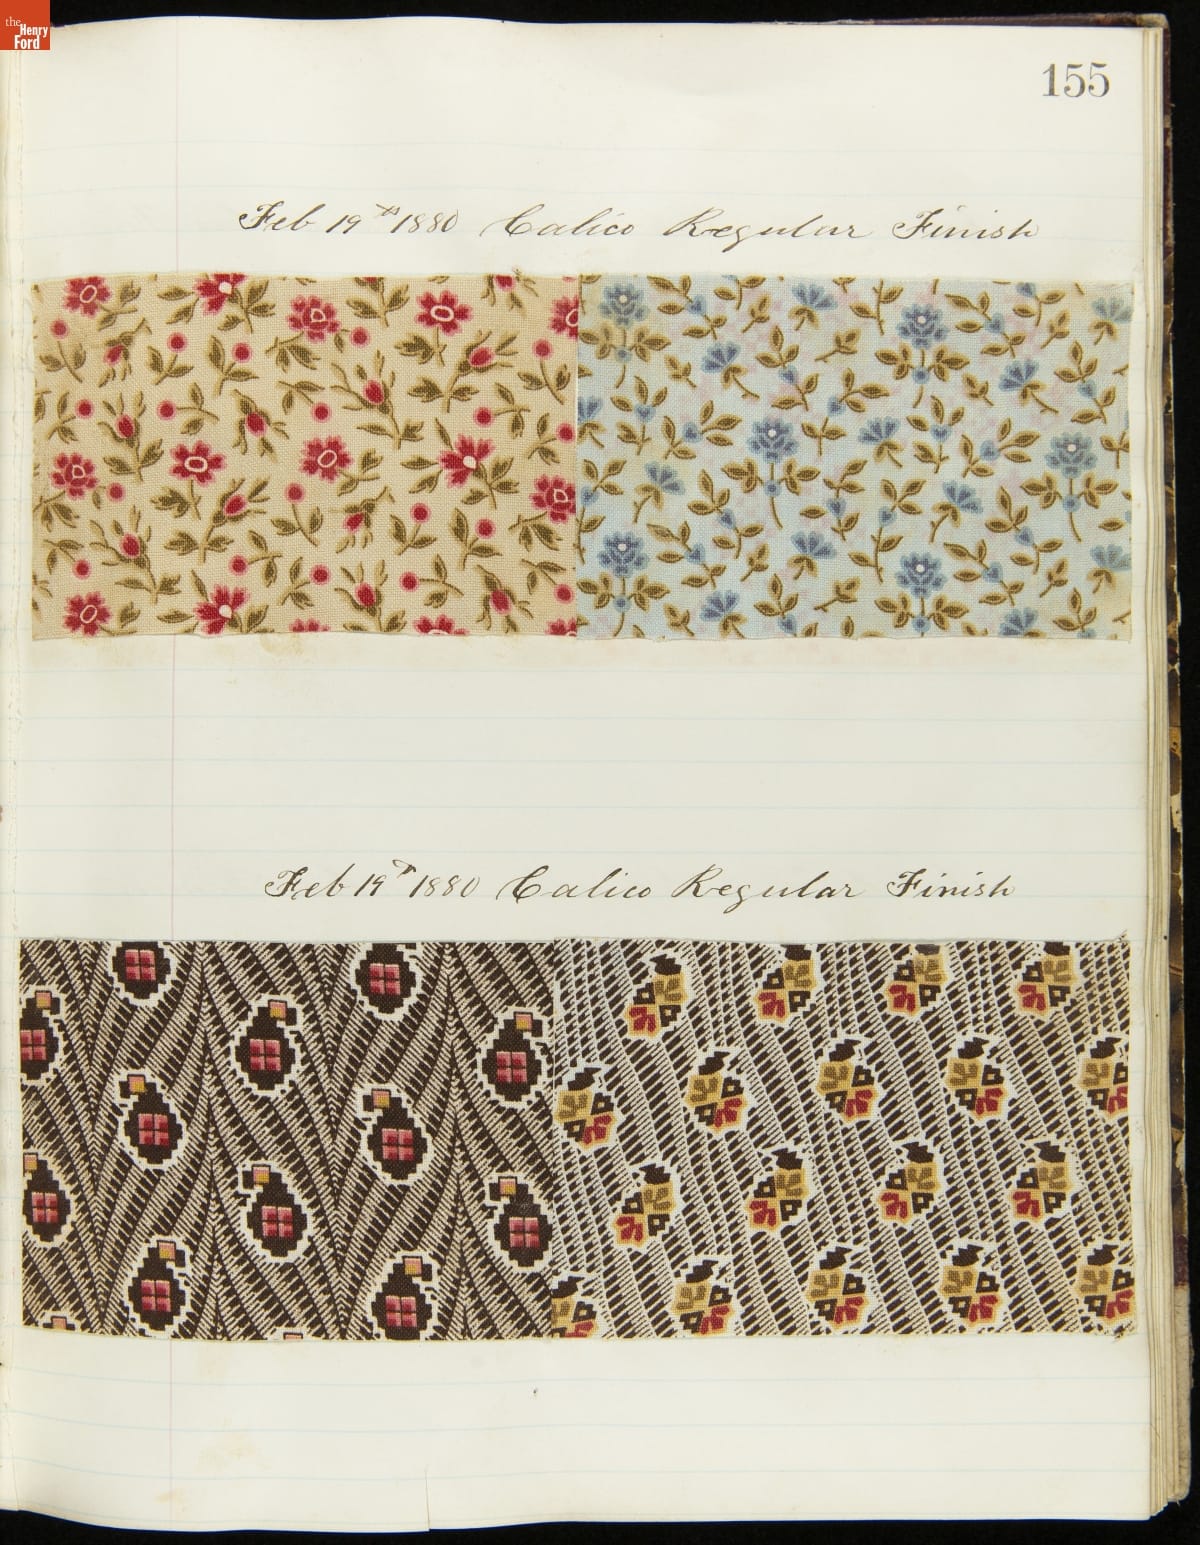 the
Henry
Ford
155
Feb 19th 1880 Calico Regular Finish
Feb 19th 1880 Calico Regular Finish